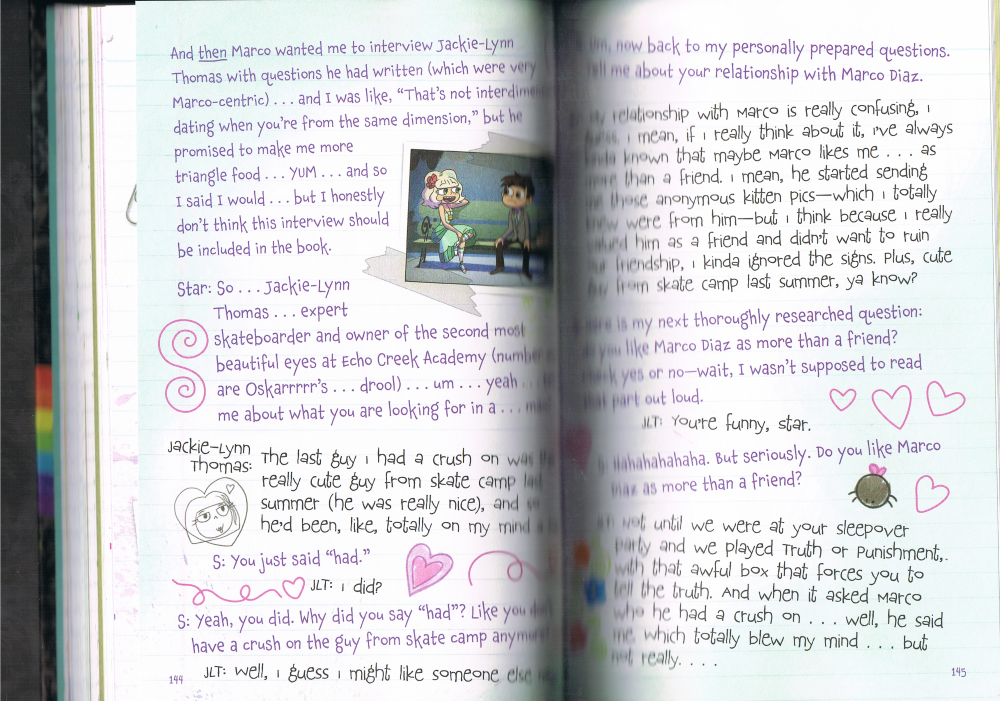 And then Marco wanted me to interview Jackie-Lynn
Thomas with questions he had written (which were very
Marco-centric) . . . and I was like, “That’s not interdimen
dating when you’re from the same dimension,” but he
promised to make me more
triangle food . . . YUM . . . and so
I said I would . . . but I honestly
don’t think this interview should
be included in the book.
Star: So . . . Jackie-Lynn
Thomas . . . expert
skateboarder and owner of the second most
beautiful eyes at Echo Creek Academy (number
are Oskarrrrr’s . . . drool) . . . um . . . yeah . . .
me about what you are looking for in a . . .
Jackie-Lynn
Thomas: The last guy I had a crush on was
really cute guy from skate camp
summer (he was really nice), and
he’d been, like, totally on my mind
S: You just said “had.”
JLT: I did?
S: Yeah, you did. Why did you say “had”? Like you
have a crush on the guy from skate camp anymore
JLT: Well, I guess I might like someone else
144
now back to my personally prepared questions.
Tell me about your relationship with Marco Diaz.
relationship with Marco is really confusing, I
I mean, if I really think about it, I’ve always
kinda known that maybe Marco likes me . . . as
more than a friend. I mean, he started sending
me those anonymous kitten pics—which I totally
knew were from him—but I think because I really
valued him as a friend and didn’t want to ruin
our friendship, I kinda ignored the signs. Plus, cute
guy from skate camp last summer, ya know?
is my next thoroughly researched question:
do you like Marco Diaz as more than a friend?
yes or no—wait, I wasn’t supposed to read
that part out loud.
JLT: You’re funny, Star.
Hahahahahaha. But seriously. Do you like Marco
Diaz as more than a friend?
not until we were at your sleepover
party and we played Truth or Punishment,
with that awful box that forces you to
tell the truth. And when it asked Marco
who he had a crush on . . . well, he said
me, which totally blew my mind . . . but
not really. . . .
145